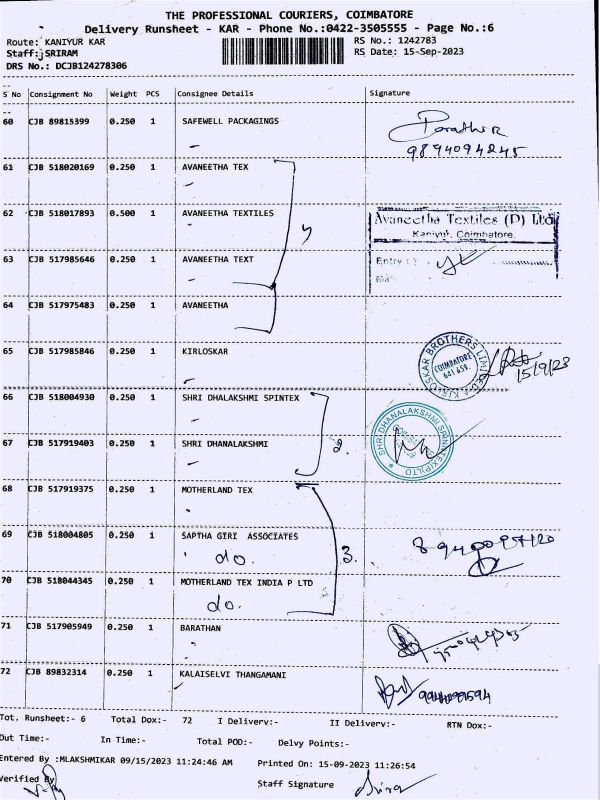 THE PROFESSIONAL COURIERS, COIMBATORE
Delivery Runsheet - KAR - Phone No.:0422-3505555 - Page No.:6
Route: KANIYUR KAR
RS No.: 1242783
Staff: SRIRAM
RS Date: 15-Sep-2023
DRS No.: DCJB124278306
S No Consignment No Weight PCS Consignee Details Signature
60 CJB 89815399 0.250 1 SAFEWELL PACKAGINGS
9894094245
61 CJB 518020169 0.250 1 AVANEETHA TEX
62 CJB 518017893 0.500 1 AVANEETHA TEXTILES
Avaneetha Textiles (P) Ltd
Kaniyur, Coimbatore.
63 CJB 517985646 0.250 1 AVANEETHA TEXT
Entry
64 CJB 517975483 0.250 1 AVANEETHA
65 CJB 517985846 0.250 1 KIRLOSKAR
KIRLOSKAR BROTHERS LIMITED
COIMBATORE
641 659.
15/9/23
66 CJB 518004930 0.250 1 SHRI DHALAKSHMI SPINTEX
67 CJB 517919403 0.250 1 SHRI DHANALAKSHMI
2.
SHRI DHANALAKSHMI SPINNTEX(P)LTD
68 CJB 517919375 0.250 1 MOTHERLAND TEX
69 CJB 518004805 0.250 1 SAPTHA GIRI ASSOCIATES
do.
3.
70 CJB 518044345 0.250 1 MOTHERLAND TEX INDIA P LTD
do.
71 CJB 517905949 0.250 1 BARATHAN
72 CJB 89832314 0.250 1 KALAISELVI THANGAMANI
Tot. Runsheet:- 6 Total Dox:- 72 I Delivery:- II Delivery:- RTN Dox:-
Out Time:- In Time:- Total POD:- Delvy Points:-
Entered By :MLAKSHMIKAR 09/15/2023 11:24:46 AM Printed On: 15-09-2023 11:26:54
Verified By
Staff Signature